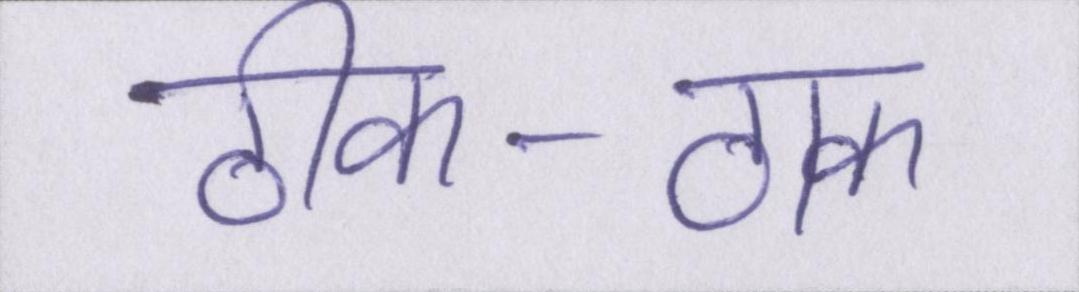 ठीक-ठाक